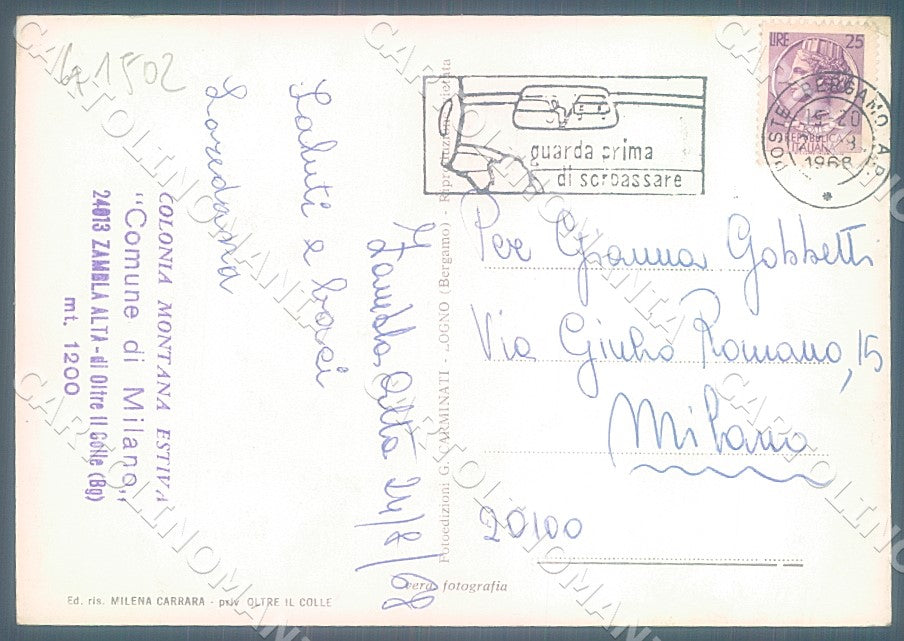 1502
Zambla Alta 24/8/68
Saluti e baci
Loredana
COLONIA MONTANA ESTIVA
"Comune di Milano„
24013 ZAMBLA ALTA - di Oltre Il Colle (Bg)
mt. 1200
Ed. ris. MILENA CARRARA - psiv OLTRE IL COLLE
Fotoedizioni G. CARMINATI - LOGNO (Bergamo) - Riproduzione vietata
vera fotografia
guarda prima
di sorpassare
LIRE 25
POSTE
ITALIANA
BERGAMO A.P.
1968
Per Gianna Gobbetti
Via Giulio Romano, 15
Milano
20100
CARTOLINOMANIA